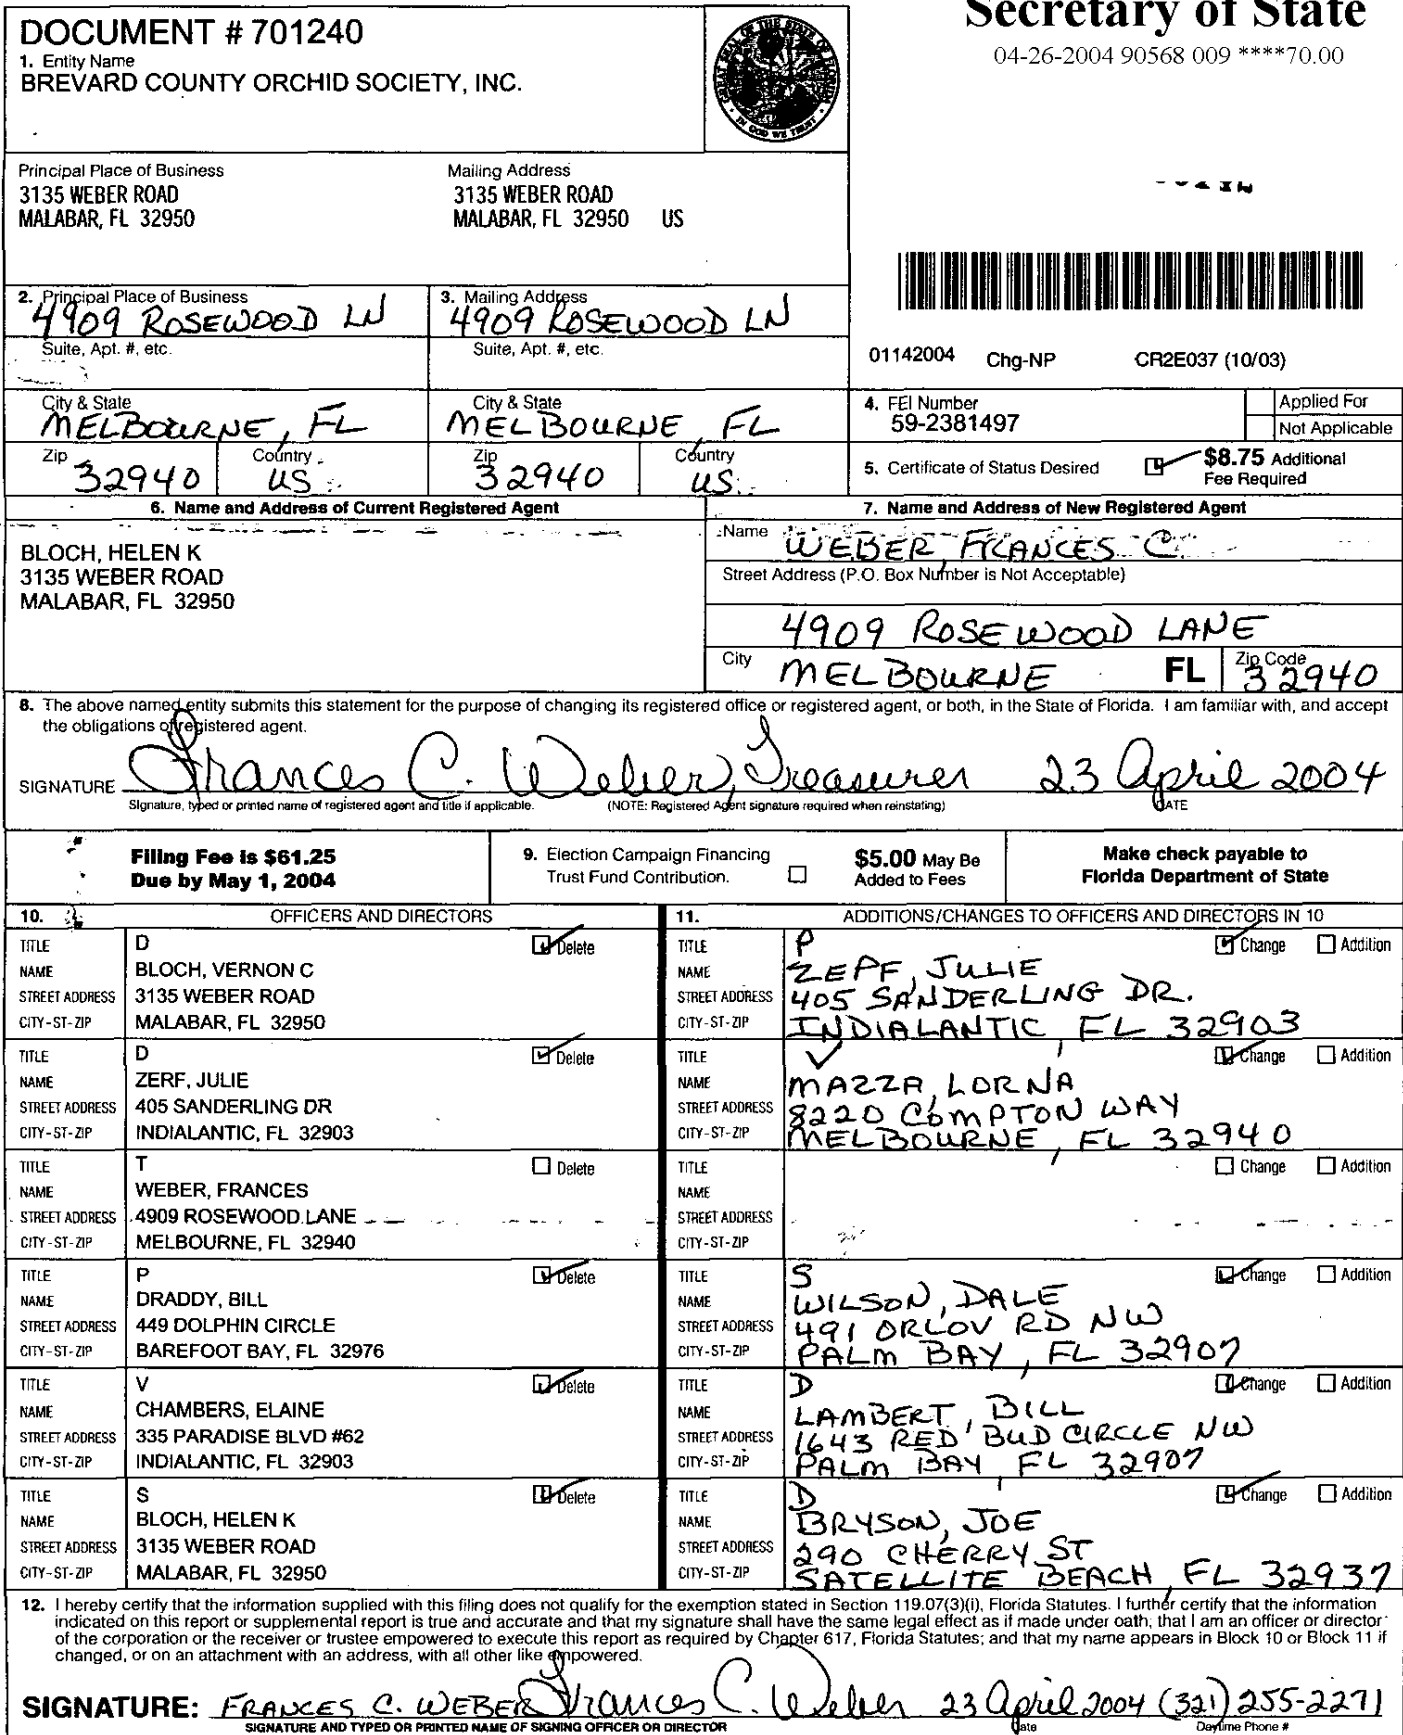 Secretary of State
04-26-2004 90568 009 ****70.00
DOCUMENT # 701240
1. Entity Name
BREVARD COUNTY ORCHID SOCIETY, INC.
GREAT SEAL OF THE STATE OF FLORIDA
IN GOD WE TRUST
Principal Place of Business
3135 WEBER ROAD
MALABAR, FL 32950
Mailing Address
3135 WEBER ROAD
MALABAR, FL 32950 US
2. Principal Place of Business
4909 ROSEWOOD LN
Suite, Apt. #, etc.
City & State
MELBOURNE, FL
Zip 32940 Country US
3. Mailing Address
4909 ROSEWOOD LN
Suite, Apt. #, etc.
City & State
MELBOURNE, FL
Zip 32940 Country US
01142004 Chg-NP CR2E037 (10/03)
4. FEI Number
59-2381497
Applied For
Not Applicable
5. Certificate of Status Desired $8.75 Additional
Fee Required
6. Name and Address of Current Registered Agent
BLOCH, HELEN K
3135 WEBER ROAD
MALABAR, FL 32950
7. Name and Address of New Registered Agent
Name WEBER, FRANCES C.
Street Address (P.O. Box Number is Not Acceptable)
4909 ROSEWOOD LANE
City MELBOURNE FL Zip Code 32940
8. The above named entity submits this statement for the purpose of changing its registered office or registered agent, or both, in the State of Florida. I am familiar with, and accept
the obligations of registered agent.
SIGNATURE Frances C. Weber, Treasurer 23 April 2004
Signature, typed or printed name of registered agent and title if applicable. (NOTE: Registered Agent signature required when reinstating) DATE
Filing Fee is $61.25
Due by May 1, 2004
9. Election Campaign Financing
Trust Fund Contribution.
$5.00 May Be
Added to Fees
Make check payable to
Florida Department of State
10. OFFICERS AND DIRECTORS
11. ADDITIONS/CHANGES TO OFFICERS AND DIRECTORS IN 10
TITLE D Delete
NAME BLOCH, VERNON C
STREET ADDRESS 3135 WEBER ROAD
CITY-ST-ZIP MALABAR, FL 32950
TITLE P Change Addition
NAME ZEPF, JULIE
STREET ADDRESS 405 SANDERLING DR.
CITY-ST-ZIP INDIALANTIC, FL 32903
TITLE D Delete
NAME ZERF, JULIE
STREET ADDRESS 405 SANDERLING DR
CITY-ST-ZIP INDIALANTIC, FL 32903
TITLE V Change Addition
NAME MAZZA, LORNA
STREET ADDRESS 8220 COMPTON WAY
CITY-ST-ZIP MELBOURNE, FL 32940
TITLE T Delete
NAME WEBER, FRANCES
STREET ADDRESS 4909 ROSEWOOD LANE
CITY-ST-ZIP MELBOURNE, FL 32940
TITLE Change Addition
NAME
STREET ADDRESS
CITY-ST-ZIP
TITLE P Delete
NAME DRADDY, BILL
STREET ADDRESS 449 DOLPHIN CIRCLE
CITY-ST-ZIP BAREFOOT BAY, FL 32976
TITLE S Change Addition
NAME WILSON, DALE
STREET ADDRESS 491 ORLOV RD NW
CITY-ST-ZIP PALM BAY, FL 32907
TITLE V Delete
NAME CHAMBERS, ELAINE
STREET ADDRESS 335 PARADISE BLVD #62
CITY-ST-ZIP INDIALANTIC, FL 32903
TITLE D Change Addition
NAME LAMBERT, BILL
STREET ADDRESS 1643 RED BUD CIRCLE NW
CITY-ST-ZIP PALM BAY, FL 32907
TITLE S Delete
NAME BLOCH, HELEN K
STREET ADDRESS 3135 WEBER ROAD
CITY-ST-ZIP MALABAR, FL 32950
TITLE D Change Addition
NAME BRYSON, JOE
STREET ADDRESS 290 CHERRY ST
CITY-ST-ZIP SATELLITE BEACH, FL 32937
12. I hereby certify that the information supplied with this filing does not qualify for the exemption stated in Section 119.07(3)(i), Florida Statutes. I further certify that the information
indicated on this report or supplemental report is true and accurate and that my signature shall have the same legal effect as if made under oath; that I am an officer or director
of the corporation or the receiver or trustee empowered to execute this report as required by Chapter 617, Florida Statutes; and that my name appears in Block 10 or Block 11 if
changed, or on an attachment with an address, with all other like empowered.
SIGNATURE: FRANCES C. WEBER Frances C. Weber 23 April 2004 (321) 255-2271
SIGNATURE AND TYPED OR PRINTED NAME OF SIGNING OFFICER OR DIRECTOR Date Daytime Phone #